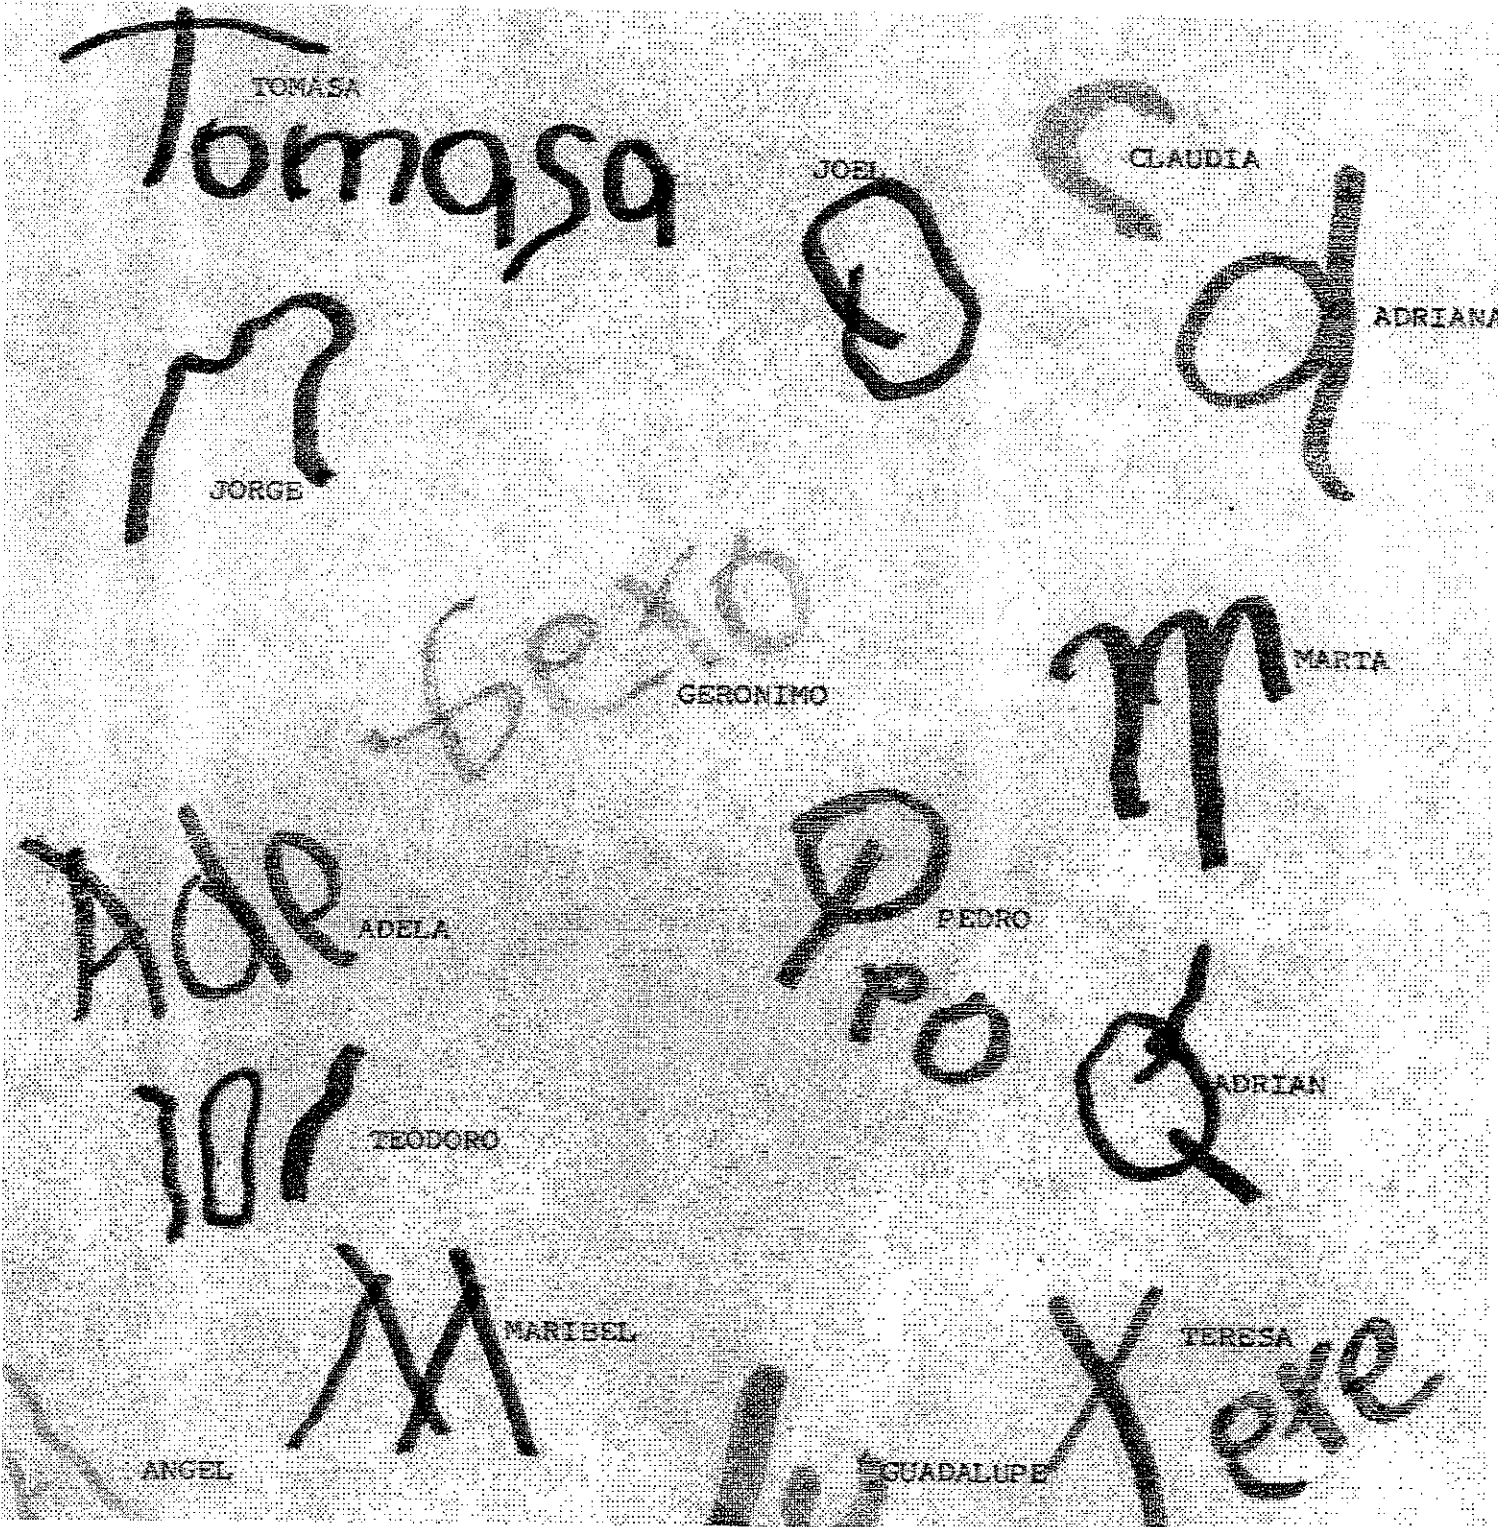 TOMASA
Tomasa
JOEL
CLAUDIA
ADRIANA
JORGE
GERONIMO
m
MARTA
Ade
ADELA
P
PEDRO
ro
ADRIAN
TEODORO
M
MARIBEL
TERESA
Xexe
ANGEL
GUADALUPE